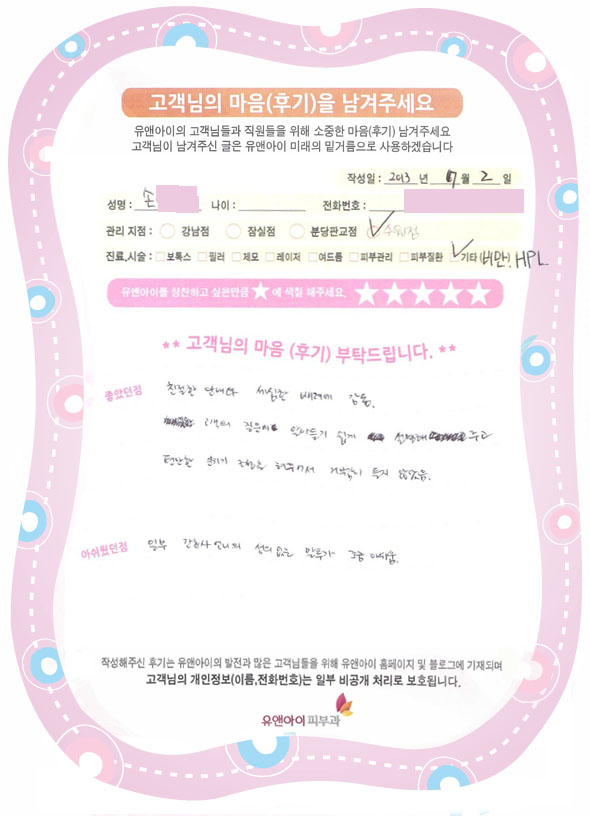 고객님의 마음(후기)을 남겨주세요
유앤아이의 고객님들과 직원들을 위해 소중한 마음(후기) 남겨주세요
고객님이 남겨주신 글은 유앤아이 미래의 밑거름으로 사용하겠습니다
작성일 : 2013 년 7 월 2 일
성명 : 손 나이 : 전화번호 :
관리 지점 : 강남점 잠실점 분당판교점 수원점
진료,시술 : 보톡스 필러 제모 레이저 여드름 피부관리 피부질환 기타 (비만), HPL
유앤아이를 칭찬하고 싶은만큼 ★에 색칠 해주세요. ★★★★★
** 고객님의 마음 (후기) 부탁드립니다. **
좋았던점 친절한 안내와 세심한 배려에 감동.
고객의 질문에 알아듣기 쉽게 설명해 주고
편안한 분위기 조성을 해주어서 거부감이 들지 않았음.
아쉬웠던점 일부 간호사 언니의 성의없는 말투가 조금 아쉬움.
작성해주신 후기는 유앤아이의 발전과 많은 고객님들을 위해 유앤아이 홈페이지 및 블로그에 기재되며
고객님의 개인정보(이름,전화번호)는 일부 비공개 처리로 보호됩니다.
유앤아이피부과